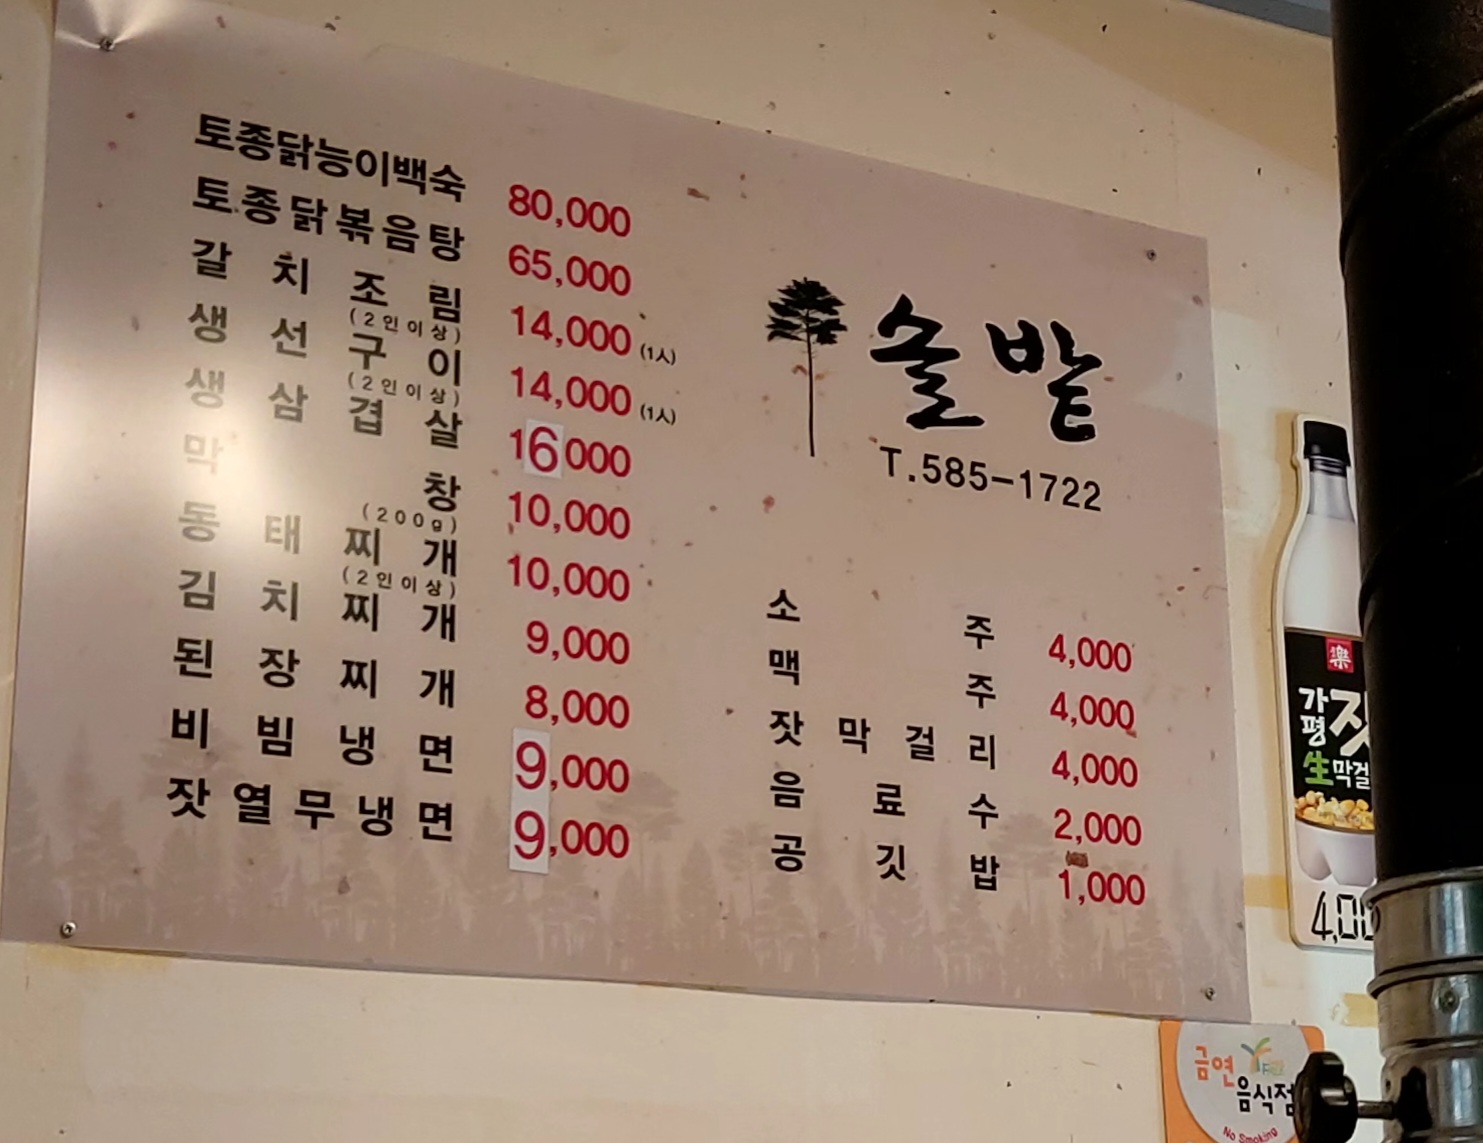 토종닭능이백숙 80,000
토종닭볶음탕 65,000
갈치조림 14,000 (1人)
(2인이상)
생선구이 14,000 (1人)
(2인이상)
생삼겹살 16000
막창 10,000
(200g)
동태찌개 10,000
(2인이상)
김치찌개 9,000
된장찌개 8,000
비빔냉면 9,000
잣열무냉면 9,000
솔밭
T.585-1722
소주 4,000
맥주 4,000
잣막걸리 4,000
음료수 2,000
공깃밥 1,000
樂
가평
잣
生막걸
금연
음식점
No Smoking